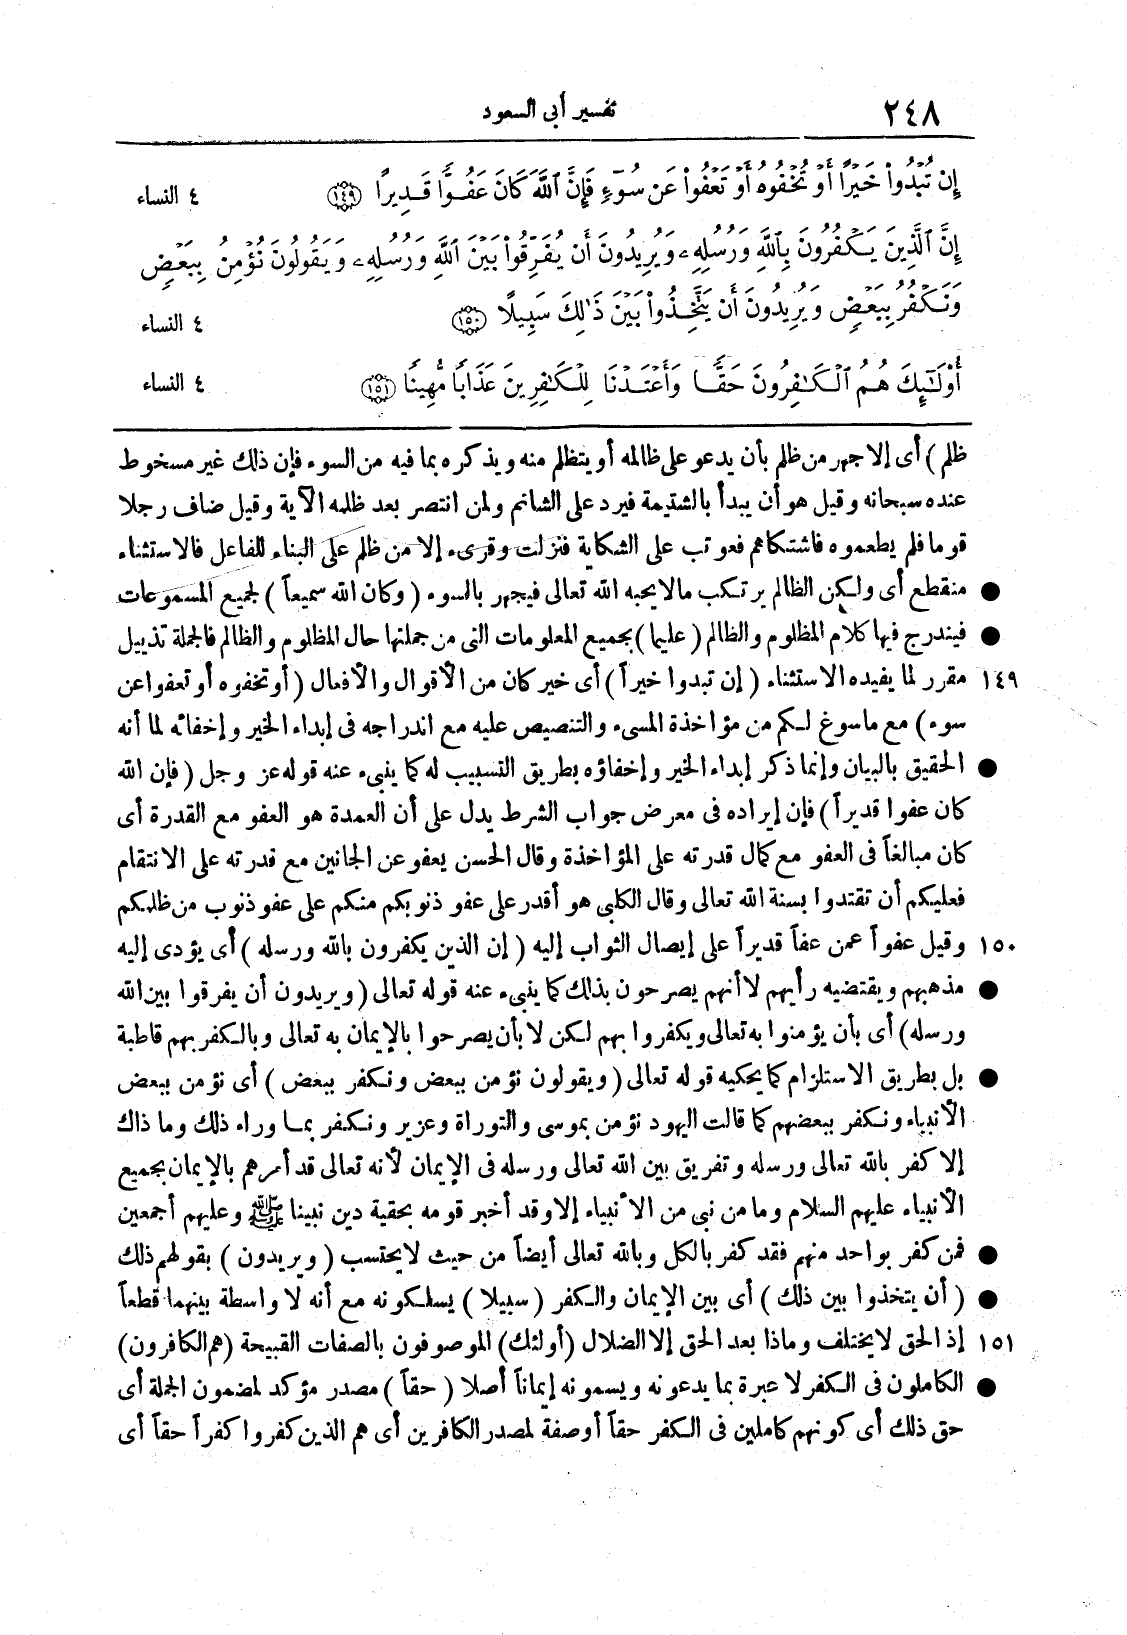 ٢٤٨ تفسير أبى السعود
إِن تُبْدُوا۟ خَيْرًا أَوْ تُخْفُوهُ أَوْ تَعْفُوا۟ عَن سُوٓءٍ فَإِنَّ ٱللَّهَ كَانَ عَفُوًّا قَدِيرًا ﴿١٤٩﴾ ٤ النساء
إِنَّ ٱلَّذِينَ يَكْفُرُونَ بِٱللَّهِ وَرُسُلِهِۦ وَيُرِيدُونَ أَن يُفَرِّقُوا۟ بَيْنَ ٱللَّهِ وَرُسُلِهِۦ وَيَقُولُونَ نُؤْمِنُ بِبَعْضٍ
وَنَكْفُرُ بِبَعْضٍ وَيُرِيدُونَ أَن يَتَّخِذُوا۟ بَيْنَ ذَٰلِكَ سَبِيلًا ﴿١٥٠﴾ ٤ النساء
أُو۟لَـٰٓئِكَ هُمُ ٱلْكَـٰفِرُونَ حَقًّا وَأَعْتَدْنَا لِلْكَـٰفِرِينَ عَذَابًا مُّهِينًا ﴿١٥١﴾ ٤ النساء
ظلم) أى إلا جهر من ظلم بأن يدعو على ظالمه أو يتظلم منه ويذكره بما فيه من السوء فإن ذلك غير مسخوط
عنده سبحانه وقيل هو أن يبدأ بالشتيمة فيرد على الشاتم ولمن انتصر بعد ظلمه الآية وقيل ضاف رجلا
قوما فلم يطعموه فاشتكاهم فعوتب على الشكاية فنزلت وقرىء إلا من ظلم على البناء للفاعل فالاستثناء
● منقطع أى ولكن الظالم يرتكب مالا يحبه الله تعالى فيجهر بالسوء (وكان الله سميعاً) لجميع المسموعات
● فيندرج فيها كلام المظلوم والظالم (عليما) بجميع المعلومات التى من جملتها حال المظلوم والظالم فالجملة تذييل
١٤٩ مقرر لما يفيده الاستثناء (إن تبدوا خيراً) أى خير كان من الأقوال والأفعال (أو تخفوه أو تعفوا عن
سوء) مع ما سوغ لكم من مؤاخذة المسىء والتنصيص عليه مع اندراجه فى إبداء الخير وإخفائه لما أنه
● الحقيق بالبيان وإنما ذكر إبداء الخير وإخفاؤه بطريق التسبيب له كما ينبىء عنه قوله عز وجل (فإن الله
كان عفوا قديراً) فإن إيراده فى معرض جواب الشرط يدل على أن العمدة هو العفو مع القدرة أى
كان مبالغاً فى العفو مع كمال قدرته على المؤاخذة وقال الحسن يعفو عن الجانين مع قدرته على الانتقام
فعليكم أن تقتدوا بسنة الله تعالى وقال الكلبى هو أقدر على عفو ذنوبكم منكم على عفو ذنوب من ظلمكم
١٥٠ وقيل عفواً عمن عفاً قديراً على إيصال الثواب إليه (إن الذين يكفرون بالله ورسله) أى يؤدى إليه
● مذهبهم ويقتضيه رأيهم لا أنهم يصرحون بذلك كما ينبىء عنه قوله تعالى (ويريدون أن يفرقوا بين الله
ورسله) أى بأن يؤمنوا به تعالى ويكفروا بهم لكن لا بأن يصرحوا بالإيمان به تعالى وبالكفر بهم قاطبة
● بل بطريق الاستلزام كما يحكيه قوله تعالى (ويقولون نؤمن ببعض ونكفر ببعض) أى نؤمن ببعض
الأنبياء ونكفر ببعضهم كما قالت اليهود نؤمن بموسى والتوراة وعزير ونكفر بما وراء ذلك وما ذاك
إلا كفر بالله تعالى ورسله وتفريق بين الله تعالى ورسله فى الإيمان لأنه تعالى قد أمرهم بالإيمان بجميع
الأنبياء عليهم السلام وما من نبى من الأنبياء إلا وقد أخبر قومه بحقية دين نبينا ﷺ وعليهم أجمعين
● فمن كفر بواحد منهم فقد كفر بالكل وبالله تعالى أيضاً من حيث لا يحتسب (ويريدون) بقولهم ذلك
● (أن يتخذوا بين ذلك) أى بين الإيمان والكفر (سبيلا) يسلكونه مع أنه لا واسطة بينهما قطعاً
١٥١ إذ الحق لا يختلف وماذا بعد الحق إلا الضلال (أولئك) الموصوفون بالصفات القبيحة (هم الكافرون)
● الكاملون فى الكفر لا عبرة بما يدعونه ويسمونه إيماناً أصلا (حقاً) مصدر مؤكد لمضمون الجملة أى
حق ذلك أى كونهم كاملين فى الكفر حقاً أو صفة لمصدر الكافرين أى هم الذين كفروا كفراً حقاً أى